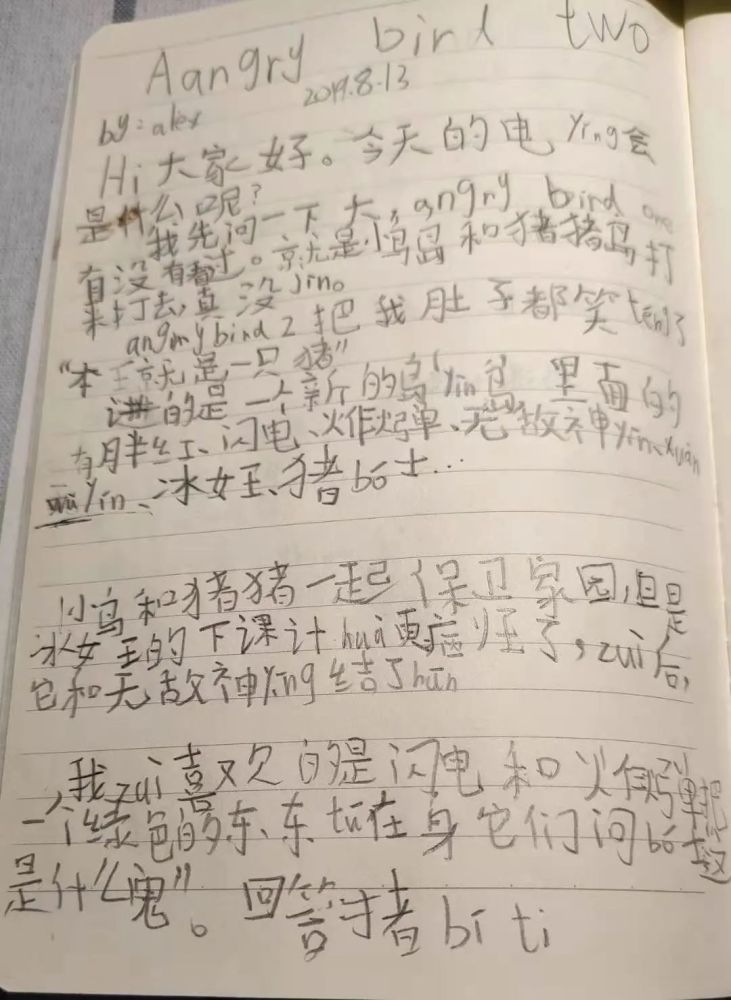 Aangry bird two
2019.8.13
by: alex
Hi 大家好。今天的电 Ying会
是什么呢?
我先问一下大, angry bird one
有没有看过。就是小鸟和猪猪岛打
来打去,真没 jin。
angry bird 2 把我肚子都笑 teng了
"本王就是一只猪"
讲的是一个新的鸟"Yin鸟,里面的
有胖红、闪电、炸弹、无敌神Yin、xuan
Yin、冰女王、猪bó士...
小鸟和猪猪一起保卫家园,但是
冰女王的下课计huà更疯狂了,zuì后,
它和无敌神Yīng结了hūn
我zuì喜欢的是闪电和炸弹把
一个绿色的东、东tú在身它们问bó士这
是什么鬼"。回答:猪bí tì